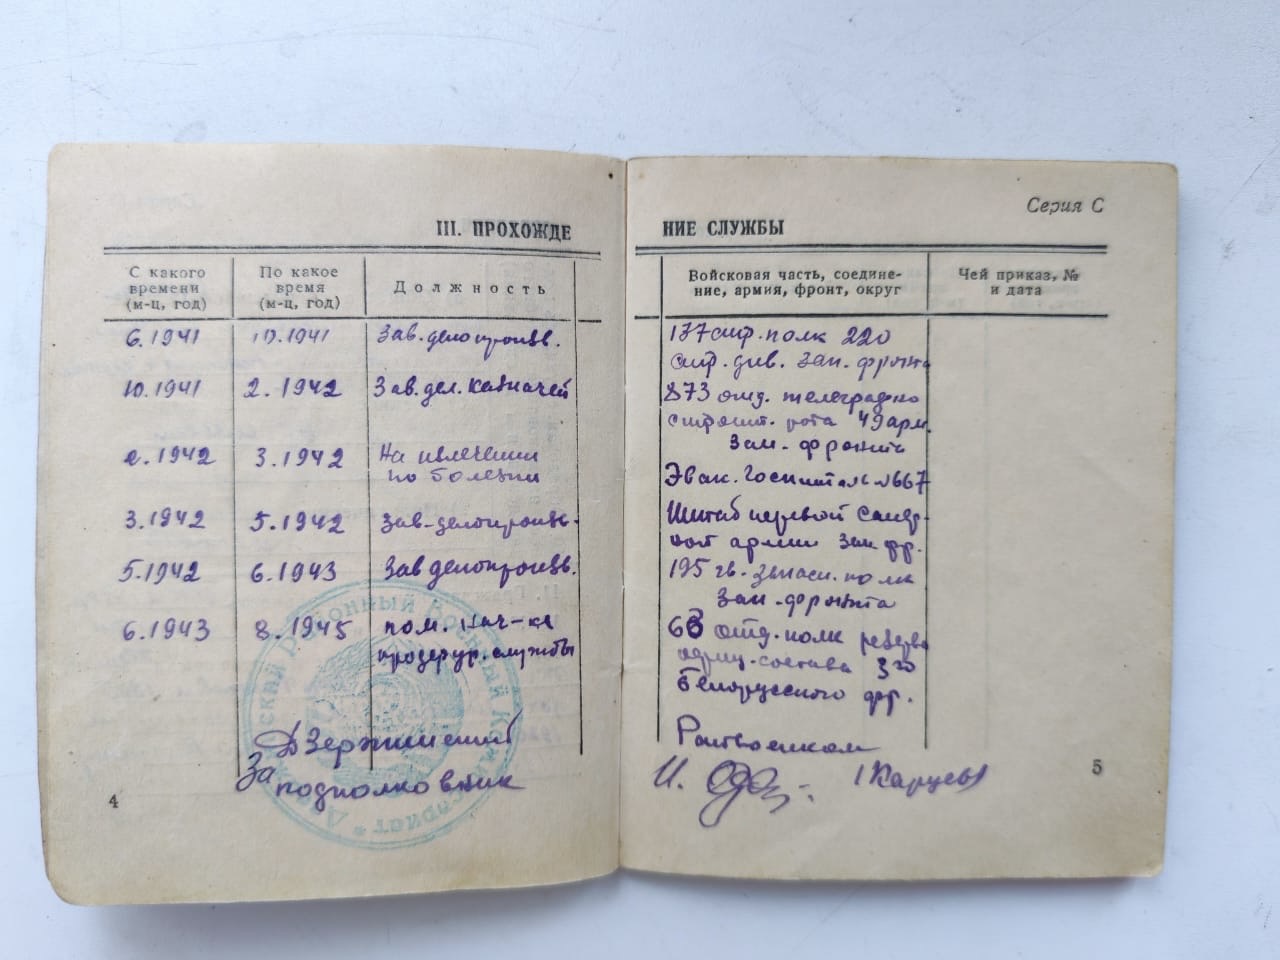 Серия С
III. ПРОХОЖДЕ
НИЕ СЛУЖБЫ
С какого времени (м-ц, год)
По какое время (м-ц, год)
Должность
Войсковая часть, соедине-
ние, армия, фронт, округ
Чей приказ, № и дата
6.1941 10.1941 Зав. делопроизв.
137 стр. полк 220
стр. див. Зап. фронта
10.1941 2.1942 Зав. дел. казначей
873 отд. телеграфно
строит. рота 49 арм.
Зап. фронта
2.1942 3.1942 На излечении
по болезни
Эвак. Госпиталь №1667
3.1942 5.1942 Зав-делопроизв.
Штаб первой
армии Зап фр.
5.1942 6.1943 Зав делопроизв.
195 гв. запасн. полк
Зап. фронта
6.1943 8.1945 пом. Нач-ка
службы
68 отд. полк резерва
офиц. состава 3го
Белорусского фр.
Дзержинский
Райвоенком
За подполковник
4
5